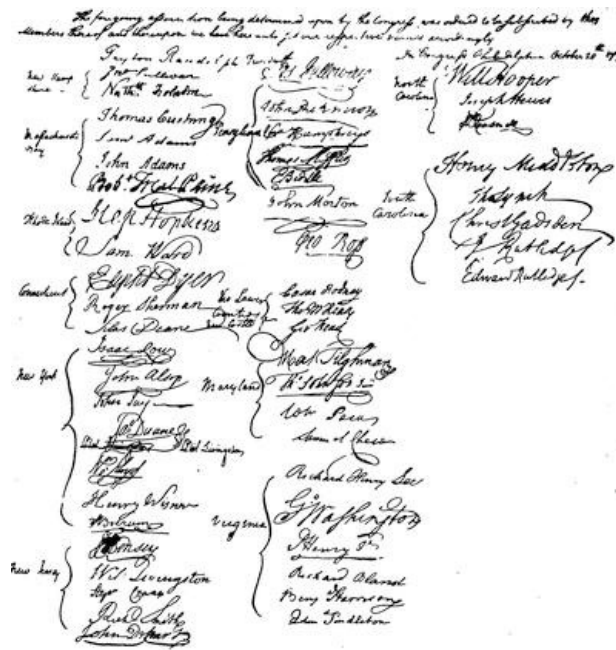 The foregoing association being determined upon by the Congress, was ordered to be subscribed by
Members thereof and thereupon we have hereunto set our respective names accordingly
In Congress Philadelphia October 20th
Peyton Randolph President
New Hampshire
Jno Sullivan
Nathl Folsom
Massachusetts Bay
Thomas Cushing
Saml Adams
John Adams
Robt Treat Paine
Rhode Island
Step Hopkins
Sam: Ward
Connecticut
Elipht Dyer
Roger Sherman
Silas Deane
New York
Isaac Low
John Alsop
John Jay
Jas Duane
Wm Floyd
Henry Wisner
S: Boerum
New Jersey
J Kinsey
Wil: Livingston
Stepn Crane
Richd Smith
John De Hart
Pennsylvania
Jos Galloway
John Dickinson
Cha Humphreys
Thomas Mifflin
E Biddle
John Morton
Geo: Ross
The Lower Counties New Castle
Caesar Rodney
Tho M:Kean
Geo Read
Maryland
Mat Tilghman
Ths Johnson Junr
Wm Paca
Samuel Chase
Virginia
Richard Henry Lee
Go Washington
P. Henry Jr
Richard Bland
Benj Harrison
Edmd Pendleton
North Carolina
Will Hooper
Joseph Hewes
South Carolina
Henry Middleton
Tho Lynch
Christ Gadsden
J Rutledge
Edward Rutledge